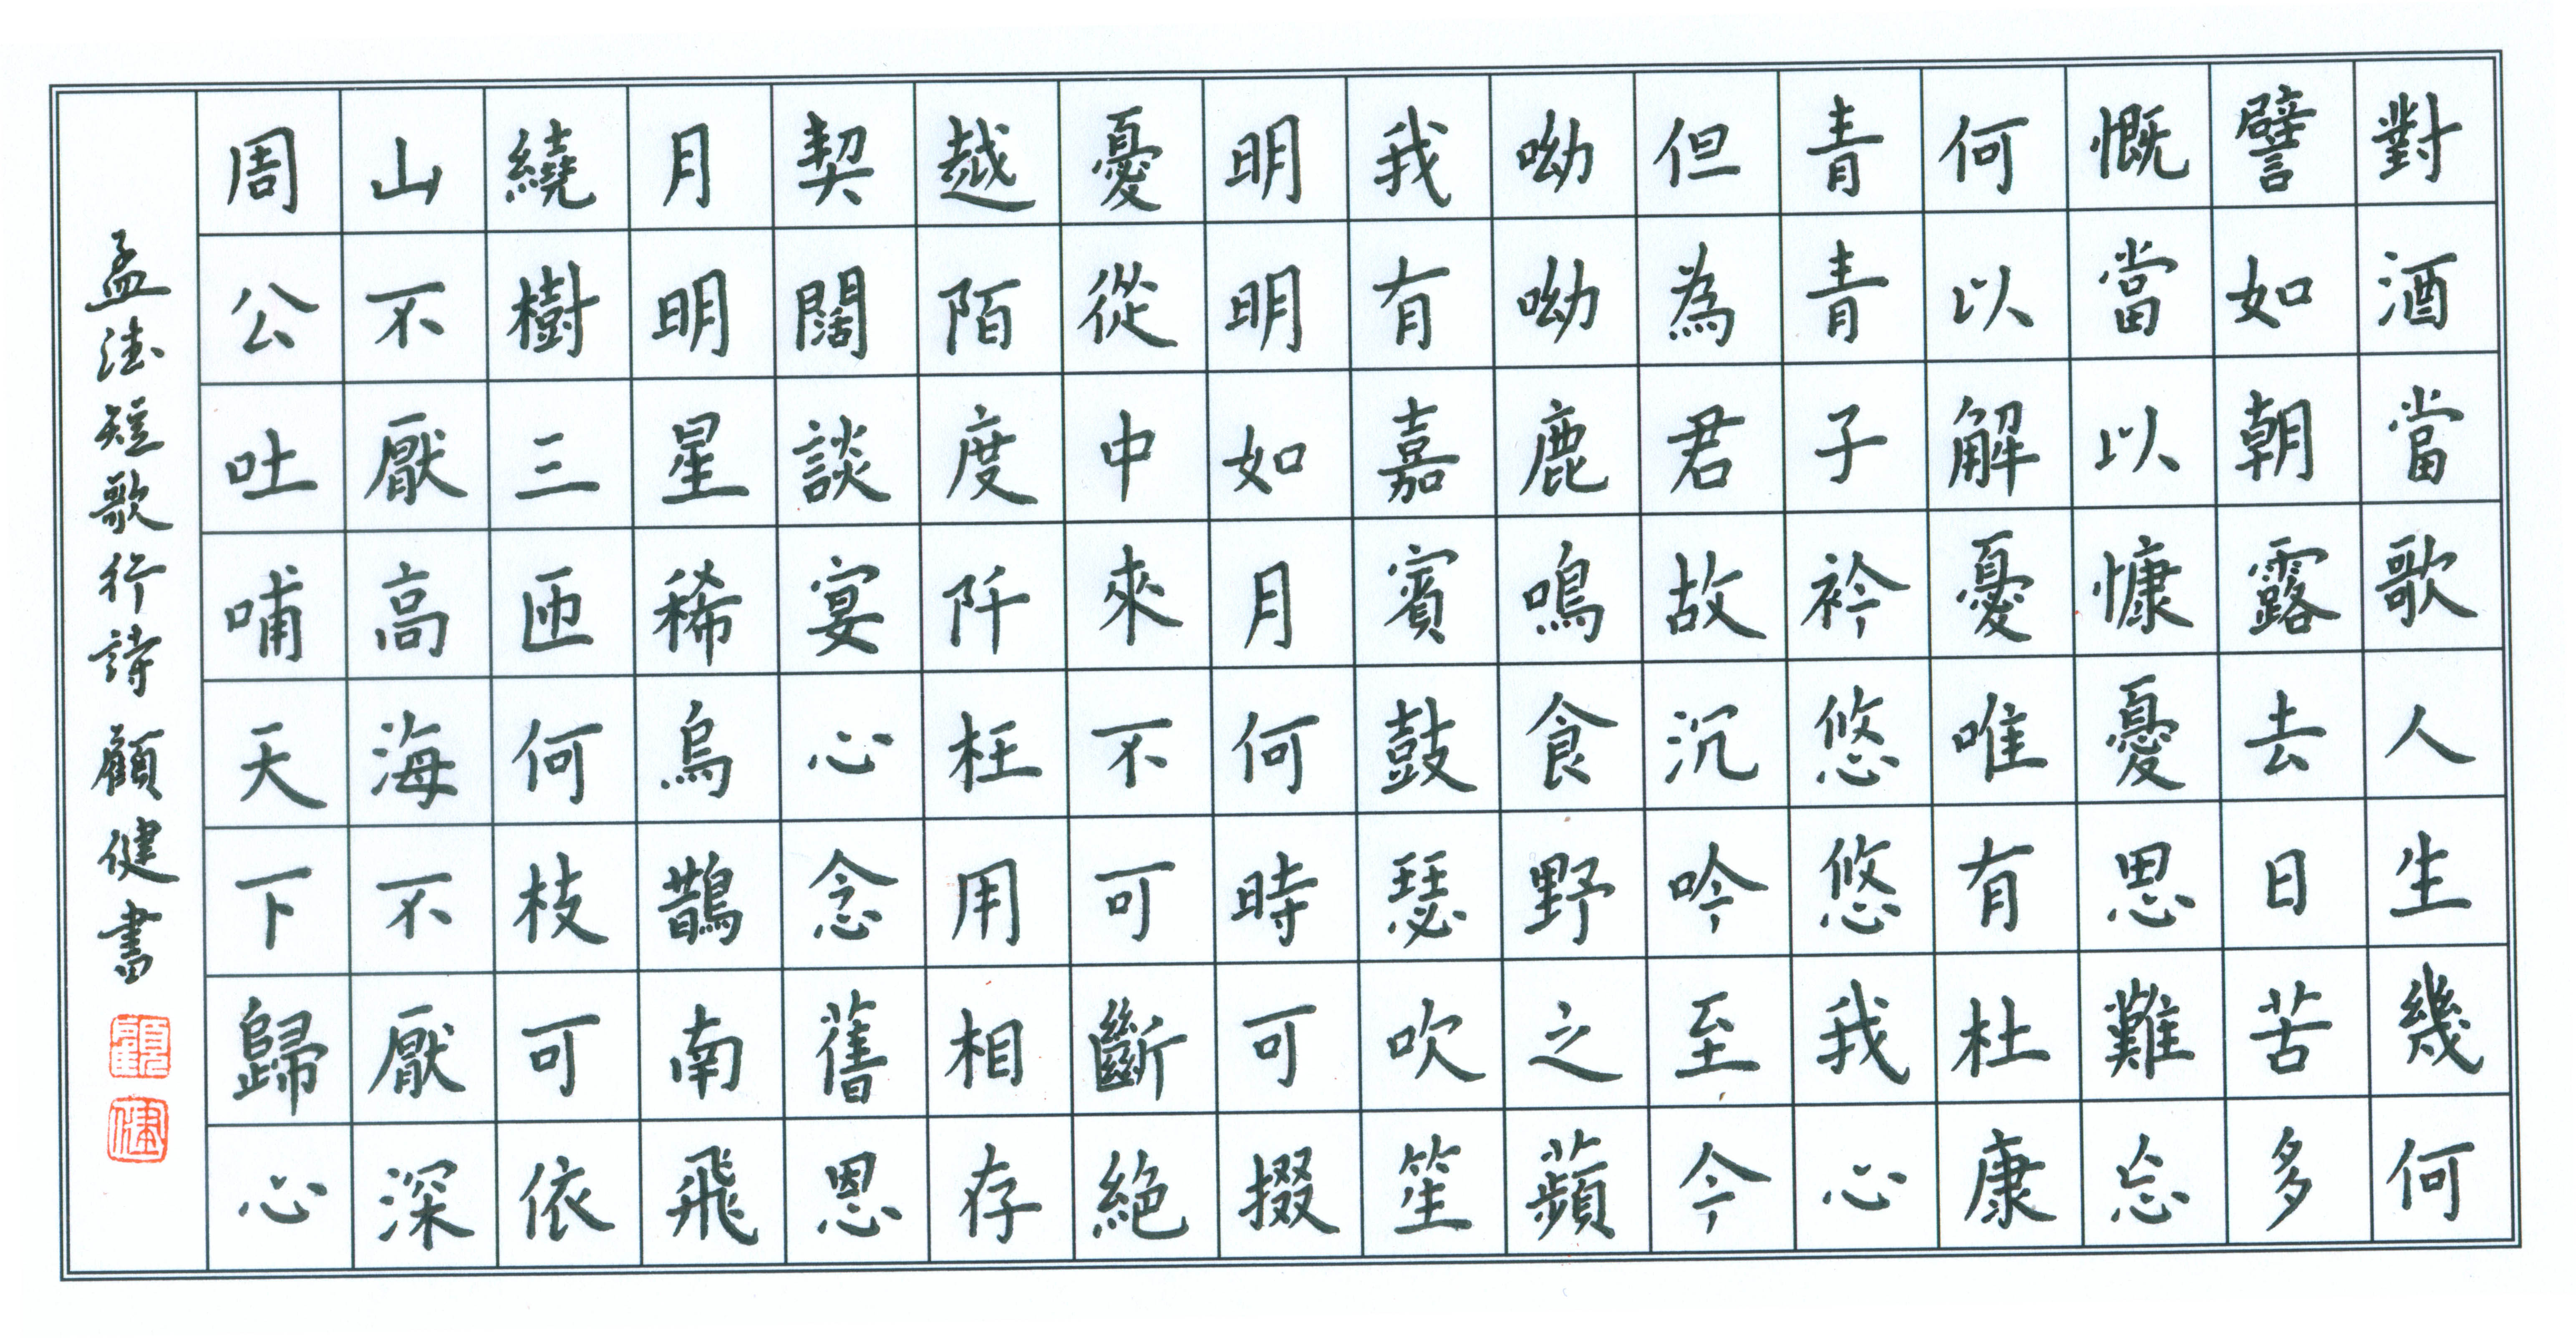 對酒當歌人生幾何
譬如朝露去日苦多
慨當以慷憂思難忘
何以解憂唯有杜康
青青子衿悠悠我心
但為君故沉吟至今
呦呦鹿鳴食野之蘋
我有嘉賓鼓瑟吹笙
明明如月何時可掇
憂從中來不可斷絕
越陌度阡枉用相存
契闊談宴心念舊恩
月明星稀烏鵲南飛
繞樹三匝何枝可依
山不厭高海不厭深
周公吐哺天下歸心
孟德短歌行詩顧健書
顧
健